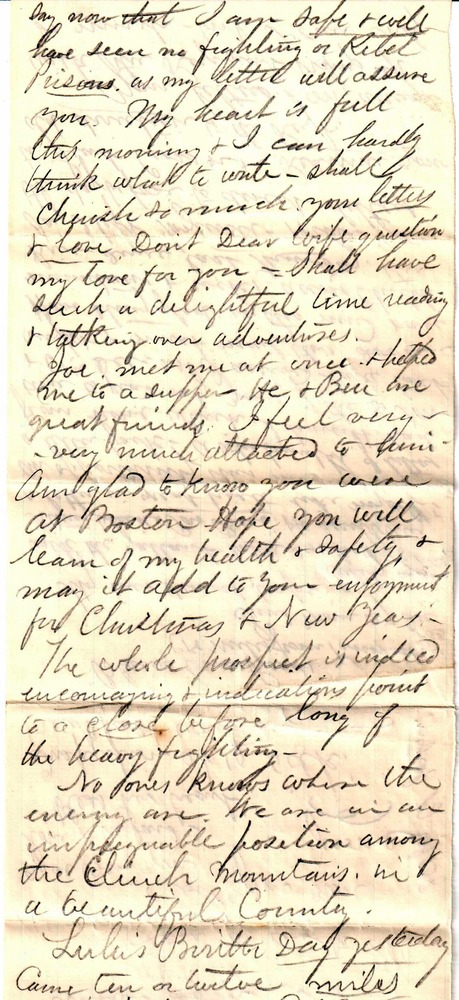 say now that I am safe & well
have seen no fighting or Rebel
Prisons. as my letter will assure
you. My heart is full
this morning & I can hardly
think what to write – shall
cherish so much your letters
& love. Dont Dear wife question
my love for you – Shall have
such a delightful time reading
& talking over adventures.
Joe. met me at once & helped
me to a supper He & Ben are
great friends. I feel very –
– very much attached to him
Am glad to know you were
at Boston Hope you will
learn of my health & safety, &
may it add to your enjoyment
for Christmas & New Years. –
The whole prospect is indeed
encouraging & indications point
to a close before long of
the heavy fighting –
No ones knows where the
enemy are. We are in an
impregnable position among
the Clinch Mountains. in
a beautiful County.
Lulis Birth Day yesterday
Came ten or twelve miles